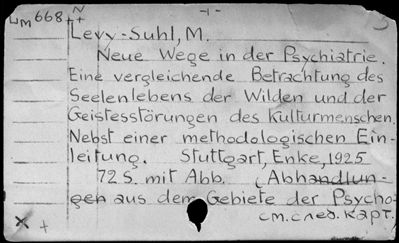 Lm 668 N
-1-
Levy-Suhl, M.
Neue Wege in der Psychiatrie.
Eine vergleichende Betrachtung des
Seelenlebens der Wilden und der
Geistesstörungen des Kulturmenschen.
Nebst einer methodologischen Ein-
leitung. Stuttgart, Enke, 1925
72 S. mit Abb. (Abhandlun-
gen aus dem Gebiete der Psycho-
см. след. карт.